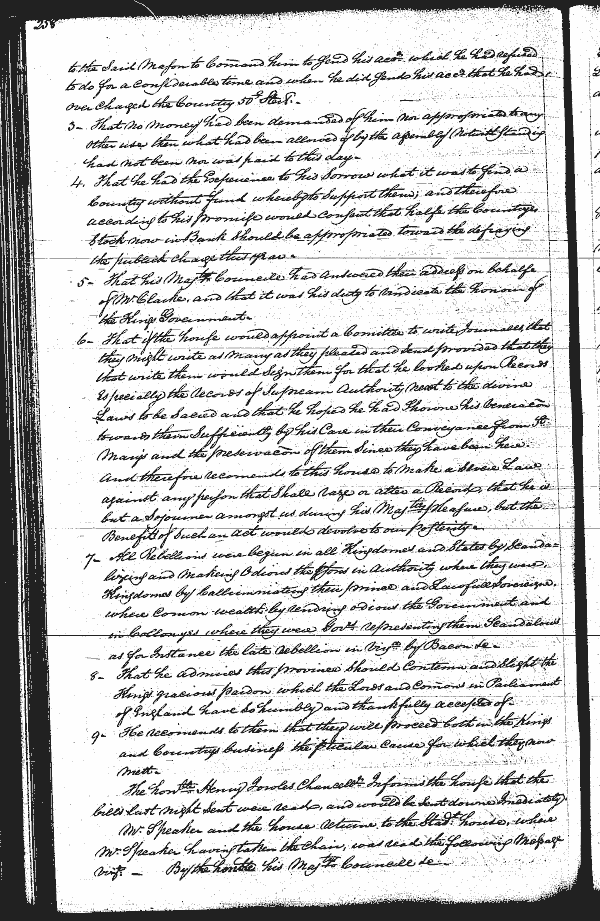 258
to the Said Mason to Comand him to Send his acco.t which he had refused
to do for a considerable time and when he did Send his acco.t that he had
over Charged the Country
3- That no money had been demanded of him nor appropriated to any
other use then what had been allowed of by the assembly Notwithstanding
had not been nor was paid to this day-
4. That he had the Experience to his Sorrow what it was to find a
Country without fund whereby to Support them; and therefore
according to his promise would consent that halfe the Countrys
Stock now in Bank Should be appropriated toward the defraying
the publick charge this year-
5- That his Maj.tys Councill had answered their address on behalfe
of Mr. Clarke, and that it was his duty to vindicate the honour of
the Kings Government-
6- That if the house would appoint a Comittee to write Journalls, that
they might write as many as they pleased and Send provided that they
that write them would Sign them for that he looked upon Records
Especially the records of Supream Authority next to the divine
Laws to be Sacred and that he hoped he had Showne his veneracon
towards them Sufficiently by his Care in their Conveyance from St.
Marys and the preservacon of them Since they have been here
And therefore recomends to this house to make a Severe Law
against any person that Shall raze or alter a Record, that he is
but a Sojourner amongst us during his Maj.tys pleasure, but the
Benefits of Such an Act would devolve to our posterity-
7- All Rebellions were begun in all Kingdomes and States by Scanda-
lizing and making Odious the psons in Authority where they were,
Kingdomes by Calluminating their prince and Lawfull Sovereigne,
where Comon wealth by rendring odious the Government and
in Collonyes where they were Gov.rs representing them Scandalous
as for Instance the late rebellion in Virg.a by Bacon &c-
8- That he admires this province Should Contemn and Slight the
Kings gracious pardon which the Lords and Comons in Parliament
of England have so humbly and thankfully accepted of-
9- He recomends to them that they will proceed both in the Kings
and Countrys business the pticular cause for which they now
mett-
The hon.ble Henry Jowles Chancell.r Informs the house that the
bills last night Sent were read, and would be Sent downe Imediately
Mr. Speaker and the house returne to the Stadt house, where
Mr. Speaker having taken the Chair, was read the following Message
vizt. - By the hon.ble his Maj.tys Councill &c-